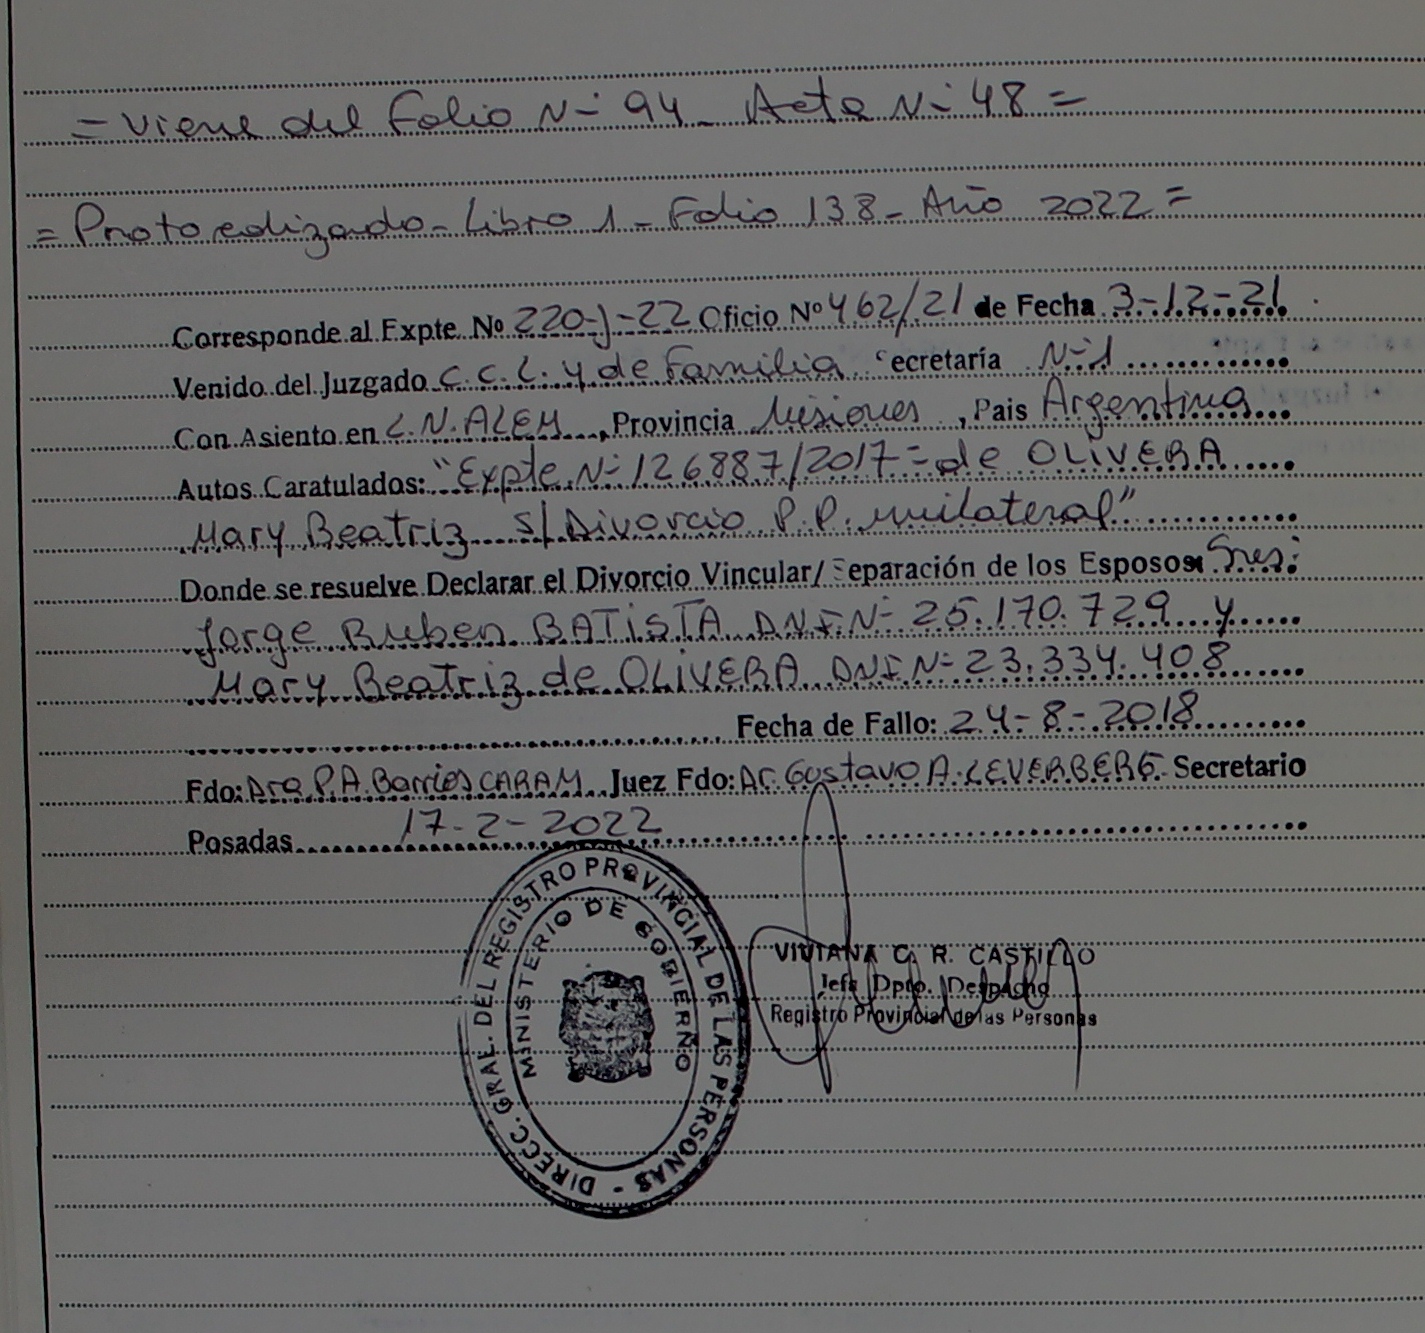 = Viene del Folio N- 94 - Acta N- 48 =
= Protocolizado - Libro 1 - Folio 138 - Año 2022 =
Corresponde al Expte. Nº 220-J-22 Oficio Nº 462/21 de Fecha 3-12-21
Venido del Juzgado C.C.L. y de Familia Secretaría N-1
Con Asiento en L.N. ALEM, Provincia Misiones, Pais Argentina
Autos Caratulados: "Expte. N- 126887/2017 = de OLIVERA
Mary Beatriz s/ Divorcio P.P. unilateral"
Donde se resuelve Declarar el Divorcio Vincular/ Separación de los Esposos: Sres:
Jorge Ruben BATISTA DNI N- 25.170.729 y
Mary Beatriz de OLIVERA DNI N- 23.334.408
Fecha de Fallo: 24-8-2018
Fdo: Dra P.A. Barrios CARAM Juez Fdo: Dr. Gustavo A. LEVERBERG Secretario
Posadas 17-2-2022
DIRECC. GRAL. DEL REGISTRO PROVINCIAL DE LAS PERSONAS -
MINISTERIO DE GOBIERNO
VIVIANA C. R. CASTILLO
Jefe Dpto. Despacho
Registro Provincial de las Personas